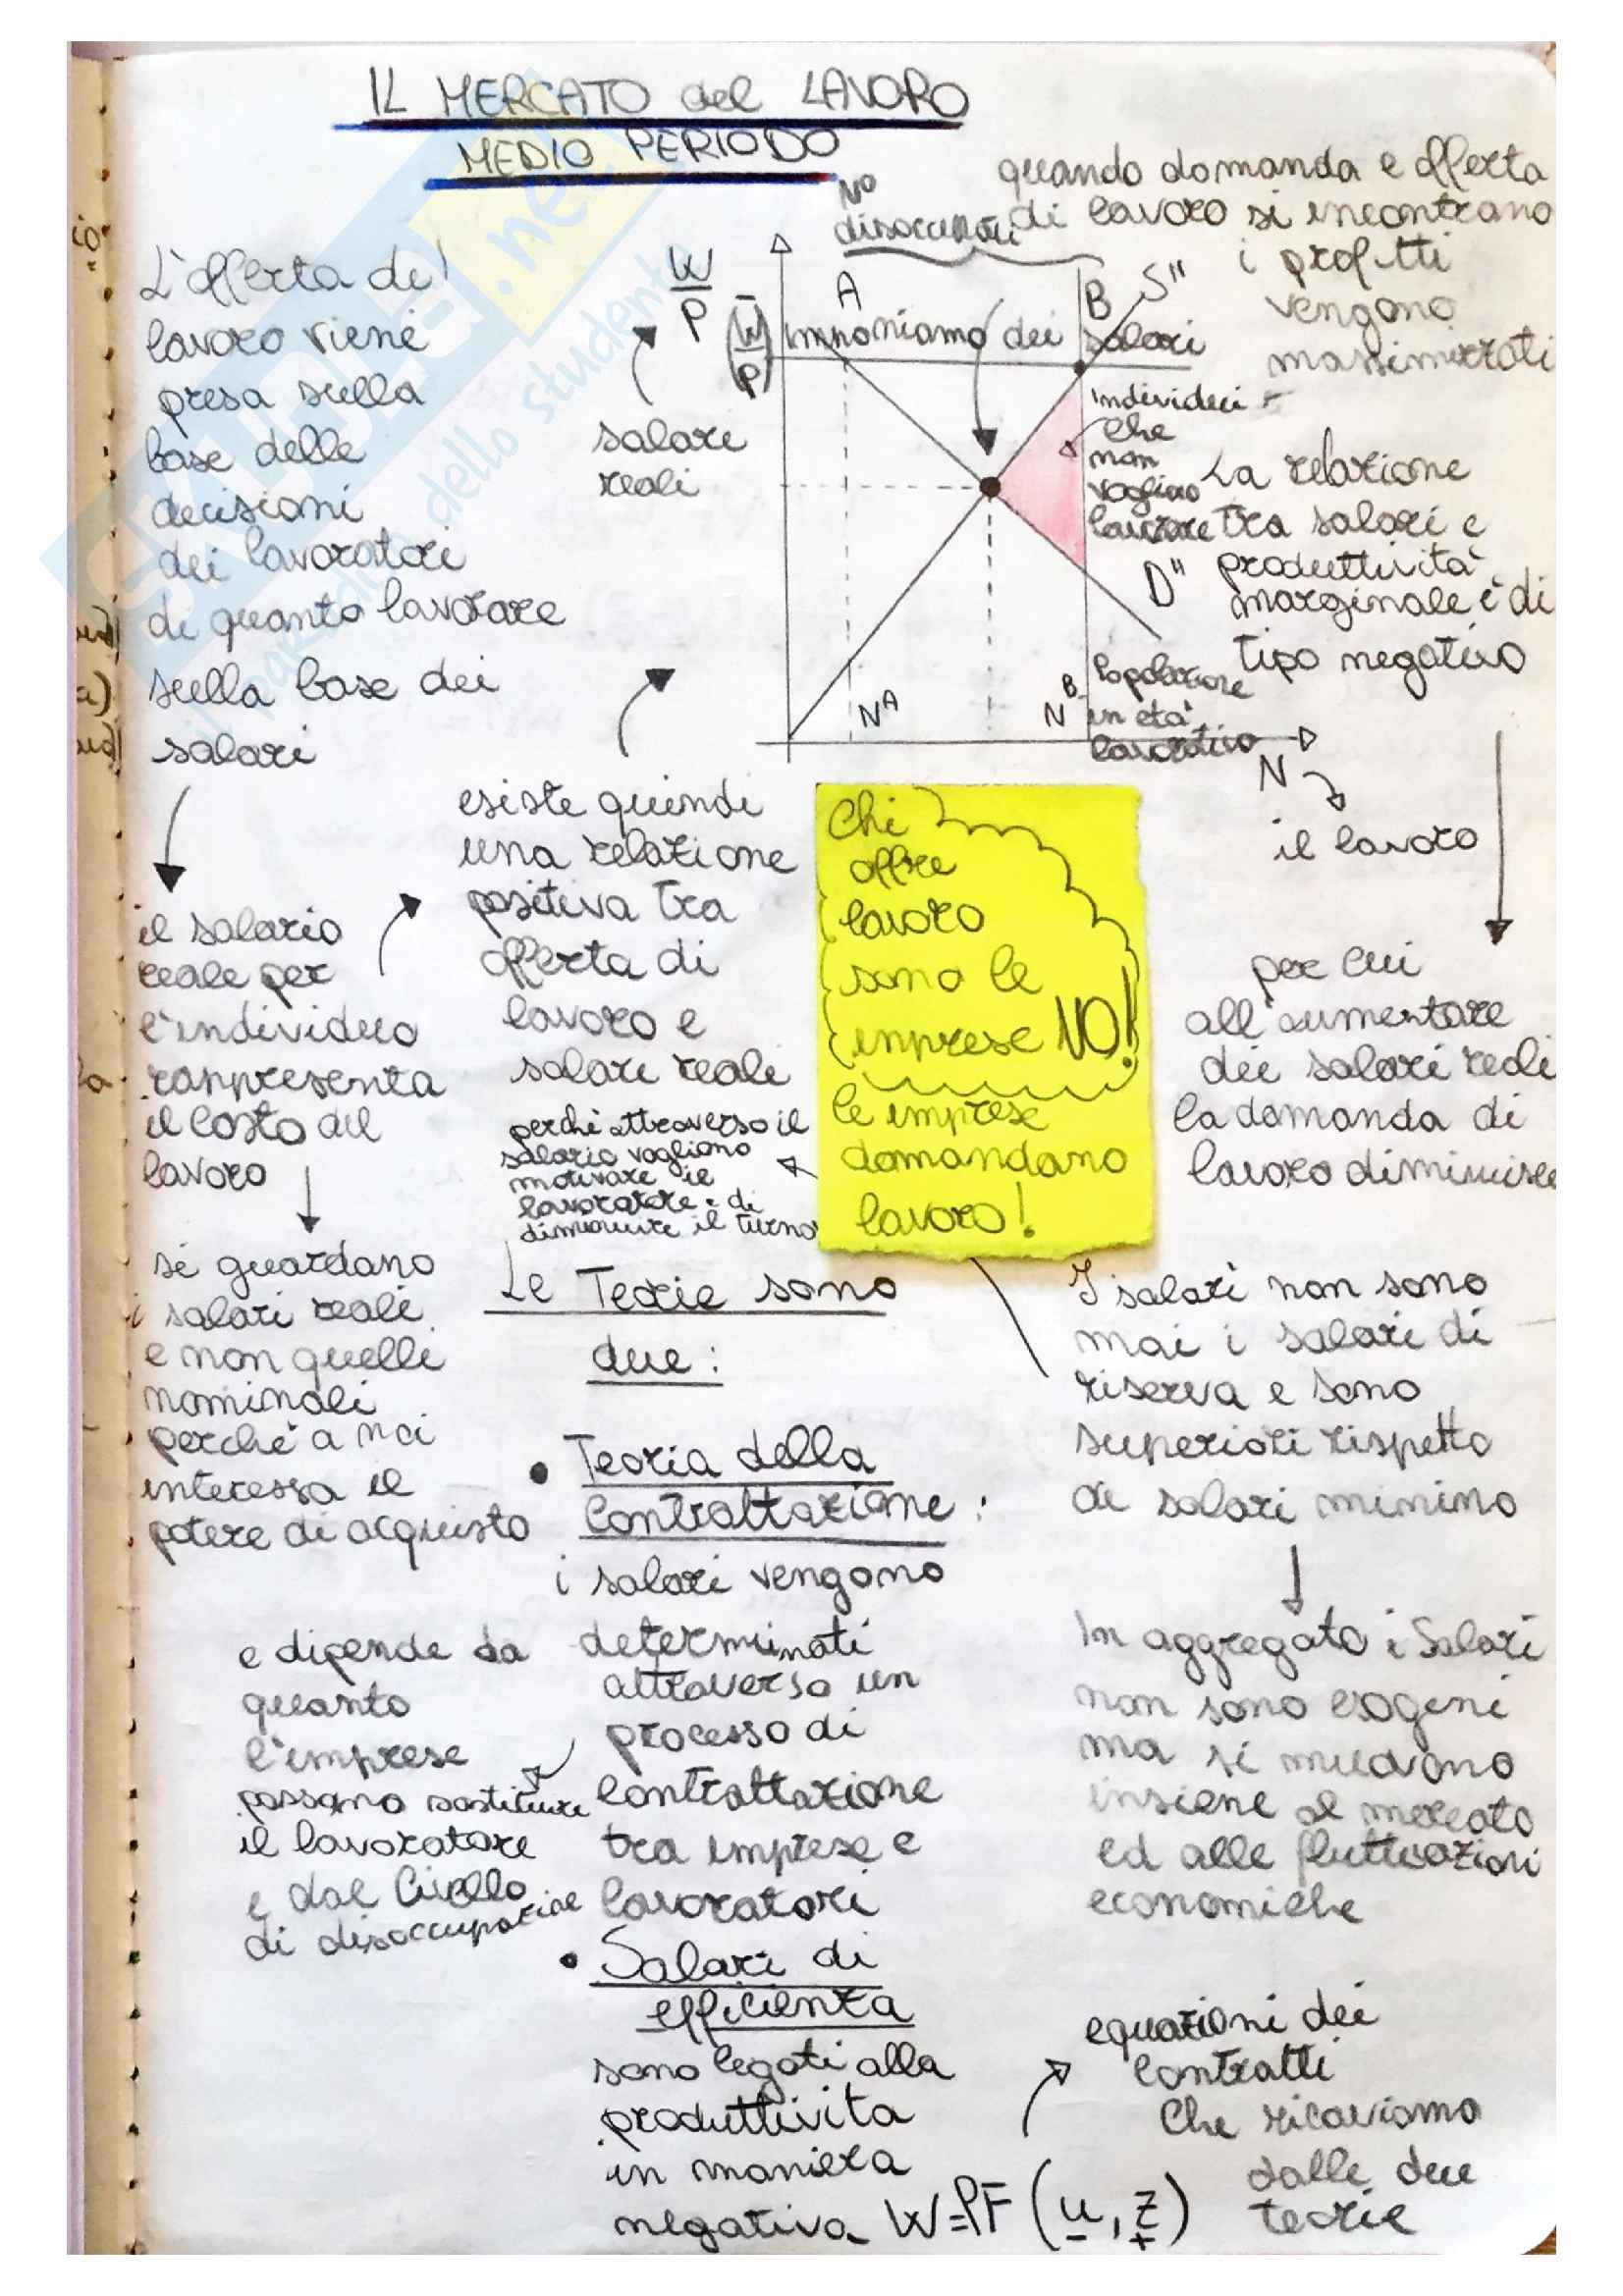 IL MERCATO del LAVORO
MEDIO PERIODO
N°
disoccupati
quando domanda e offerta
di lavoro si incontrano
i profitti
vengono
massimizzati
L'offerta di
lavoro viene
presa sulla
base delle
decisioni
dei lavoratori
di quanto lavorare
sulla base dei
salari
W
P
salari
reali
(W̄
P)
A
Imponiamo dei salari
B
S"
individui
che
non
vogliono
lavorare
D"
N^A
N^B
Popolazione
in età
lavorativa
N
il lavoro
La relazione
tra salari e
produttività
marginale è di
tipo negativo
per cui
all'aumentare
dei salari reali
la domanda di
lavoro diminuisce
il salario
reale per
l'individuo
rappresenta
il costo del
lavoro
si guardano
i salari reali
e non quelli
nominali
perché a noi
interessa il
potere di acquisto
esiste quindi
una relazione
positiva tra
offerta di
lavoro e
salari reali
Chi
offre
lavoro
sono le
imprese NO!
le imprese
domandano
lavoro!
perchè attraverso il
salario vogliono
motivare il
lavoratore e di
diminuire il turno
Le Teorie sono
due:
• Teoria della
Contrattazione:
i salari vengono
determinati
attraverso un
processo di
contrattazione
tra imprese e
lavoratori
e dipende da
quanto
l'imprese
possano sostituire
il lavoratore
e dal livello
di disoccupazione
• Salari di
efficienza
sono legati alla
produttivita
in maniera
negativa
W=PF(u,z)
- +
I salari non sono
mai i salari di
riserva e sono
superiori rispetto
ai salari minimo
In aggregato i Salari
non sono esogeni
ma si muovono
insieme al mercato
ed alle fluttuazioni
economiche
equazioni dei
contratti
Che ricaviamo
dalle due
teorie